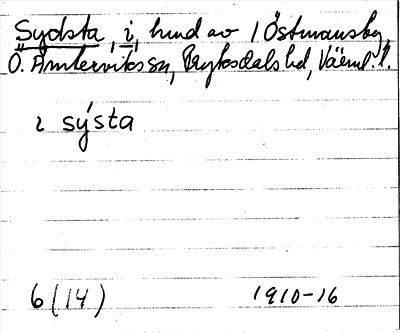 Sydsta, i, hund av 1 Östmansby,
Ö. Ämterviks sn, Fryksdals hd, Värml. l.
i sýsta
6 (14) 1910-16